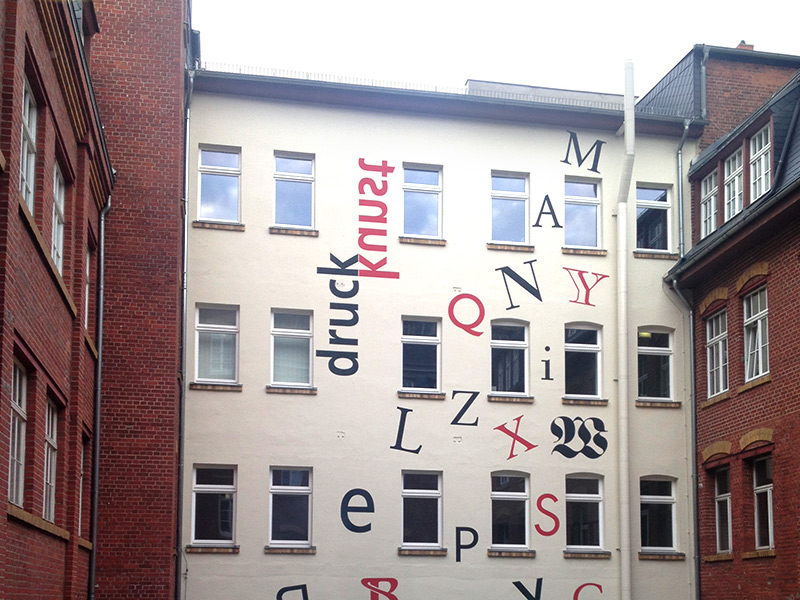 druck
kunst
M
A
N
Y
Q
i
Z
L
X
W
e
S
P